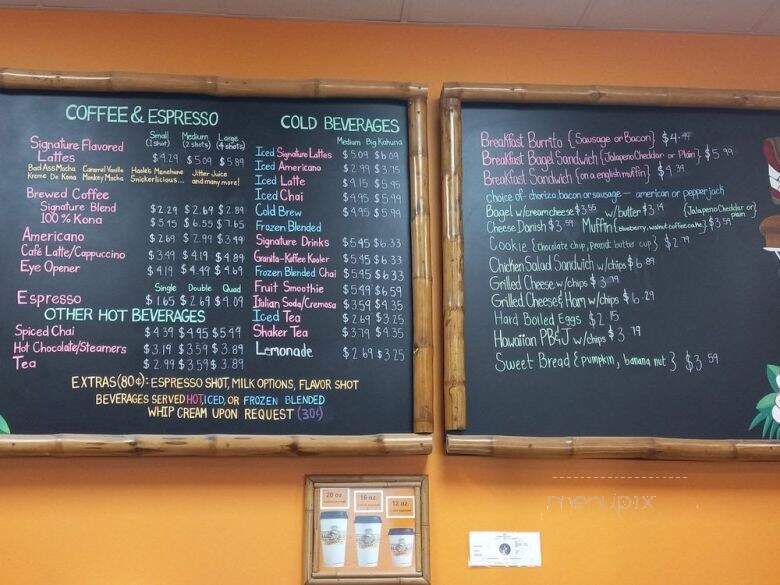 COFFEE & ESPRESSO
Small Medium Large
(1 shot) (2 shots) (4 shots)
Signature Flavored
Lattes $4.29 $5.09 $5.89
Bad Ass Mocha Caramel Vanilla Jitter Juice
Kreme De Kona Monkey Mocha and many more!
Snickerlicious...
Brewed Coffee
Signature Blend $2.29 $2.69 $2.89
100% Kona $5.15 $6.55 $7.65
Americano $2.69 $2.99 $3.49
Café Latte/Cappuccino $3.49 $4.19 $4.89
Eye Opener $4.19 $4.49 $4.69
Single Double Quad
Espresso $1.65 $2.69 $4.09
OTHER HOT BEVERAGES
Spiced Chai $4.39 $4.95 $5.49
Hot Chocolate/Steamers $3.19 $3.59 $3.89
Tea $2.99 $3.59 $3.89
COLD BEVERAGES
Medium Big Kahuna
Iced Signature Lattes $5.09 $6.09
Iced Americano $2.99 $3.75
Iced Latte $4.15 $5.95
Iced Chai $4.95 $5.99
Cold Brew $4.95 $5.99
Frozen Blended
Signature Drinks $5.45 $6.33
Granilla-Koffee Kooler $5.45 $6.33
Frozen Blended Chai $5.45 $6.33
Fruit Smoothie $5.49 $6.59
Italian Soda/Cremosa $3.59 $4.35
Iced Tea $2.69 $3.25
Shaker Tea $3.79 $4.35
Lemonade $2.69 $3.25
EXTRAS (80¢): ESPRESSO SHOT, MILK OPTIONS, FLAVOR SHOT
BEVERAGES SERVED HOT, ICED, OR FROZEN BLENDED
WHIP CREAM UPON REQUEST (30¢)
Breakfast Burrito {Sausage or Bacon} $4.49
Breakfast Bagel Sandwich {Jalapeno Cheddar or Plain} $5.99
Breakfast Sandwich {on a english muffin} $4.39
choice of- chorizo, bacon or sausage - american or pepperjack
Bagel w/creamcheese $3.55 w/butter $3.19 {Jalapeno Cheddar or plain}
Cheese Danish $3.59 Muffin {blueberry, walnut coffee cake} $3.59
Cookie {chocolate chip, peanut butter cup} $2.79
Chicken Salad Sandwich w/chips $6.89
Grilled Cheese w/chips $3.79
Grilled Cheese & Ham w/chips $6.29
Hard Boiled Eggs $2.15
Hawaiian PB&J w/chips $3.79
Sweet Bread {pumpkin, banana nut} $3.59
menupix
20 oz. 16 oz. 12 oz.